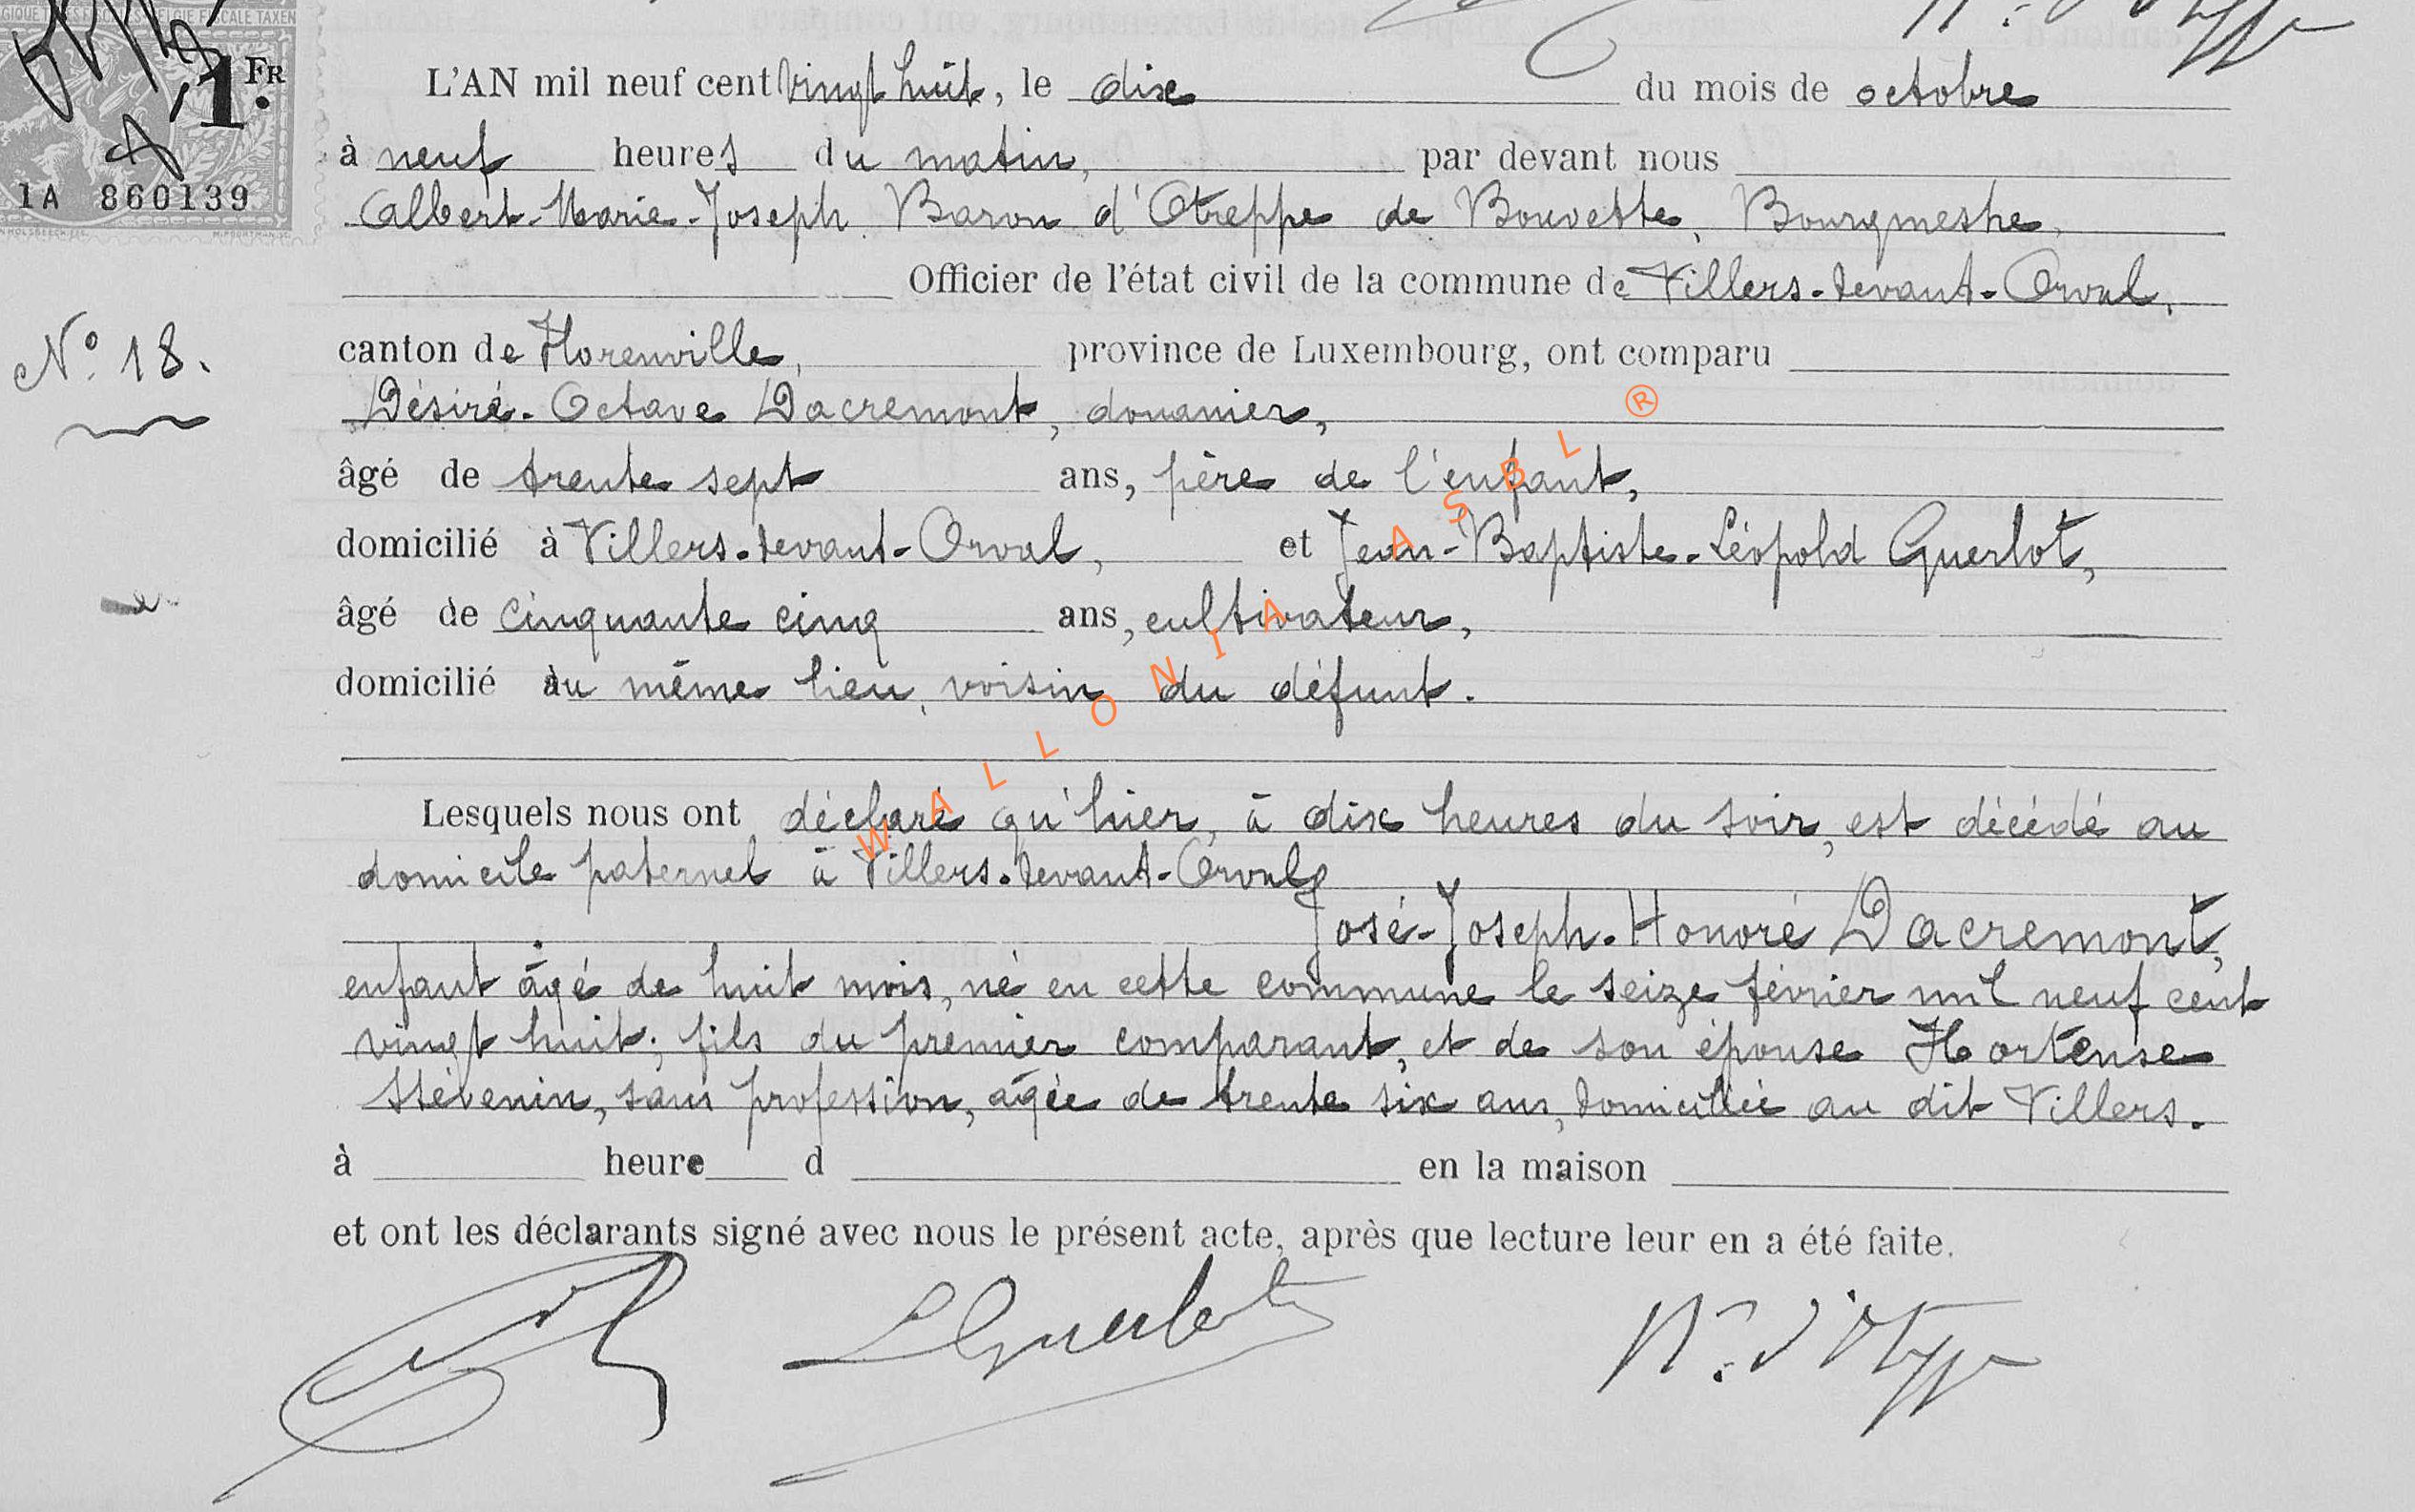 GIQUE TIMBRES FISCAUX BELGIE FISCALE TAXEN
1 FR.
1A 860139
L'AN mil neuf cent vingt huit, le dix du mois de octobre
à neuf heures du matin, par devant nous
Albert-Marie-Joseph Baron d'Otreppe de Bouvette, Bourgmestre,
Officier de l'état civil de la commune de Villers-devant-Orval,
N° 18.
canton de Florenville, province de Luxembourg, ont comparu
Désiré-Octave Dacremont, douanier,
âgé de trente sept ans, père de l'enfant,
domicilié à Villers-devant-Orval, et Jean-Baptiste-Léopold Guerlot,
âgé de cinquante cinq ans, cultivateur,
domicilié au même lieu, voisin du défunt.
Lesquels nous ont déclaré qu'hier, à dix heures du soir, est décédé au
domicile paternel à Villers-devant-Orval,
José-Joseph-Honoré Dacremont,
enfant âgé de huit mois, né en cette commune le seize février mil neuf cent
vingt huit; fils du premier comparant, et de son épouse Hortense
Stévenin, sans profession, âgée de trente six ans, domiciliée au dit Villers.
à heure d en la maison
et ont les déclarants signé avec nous le présent acte, après que lecture leur en a été faite.
LGuerlot
Bn. d'Otreppe
WALLONIA ASBL ®